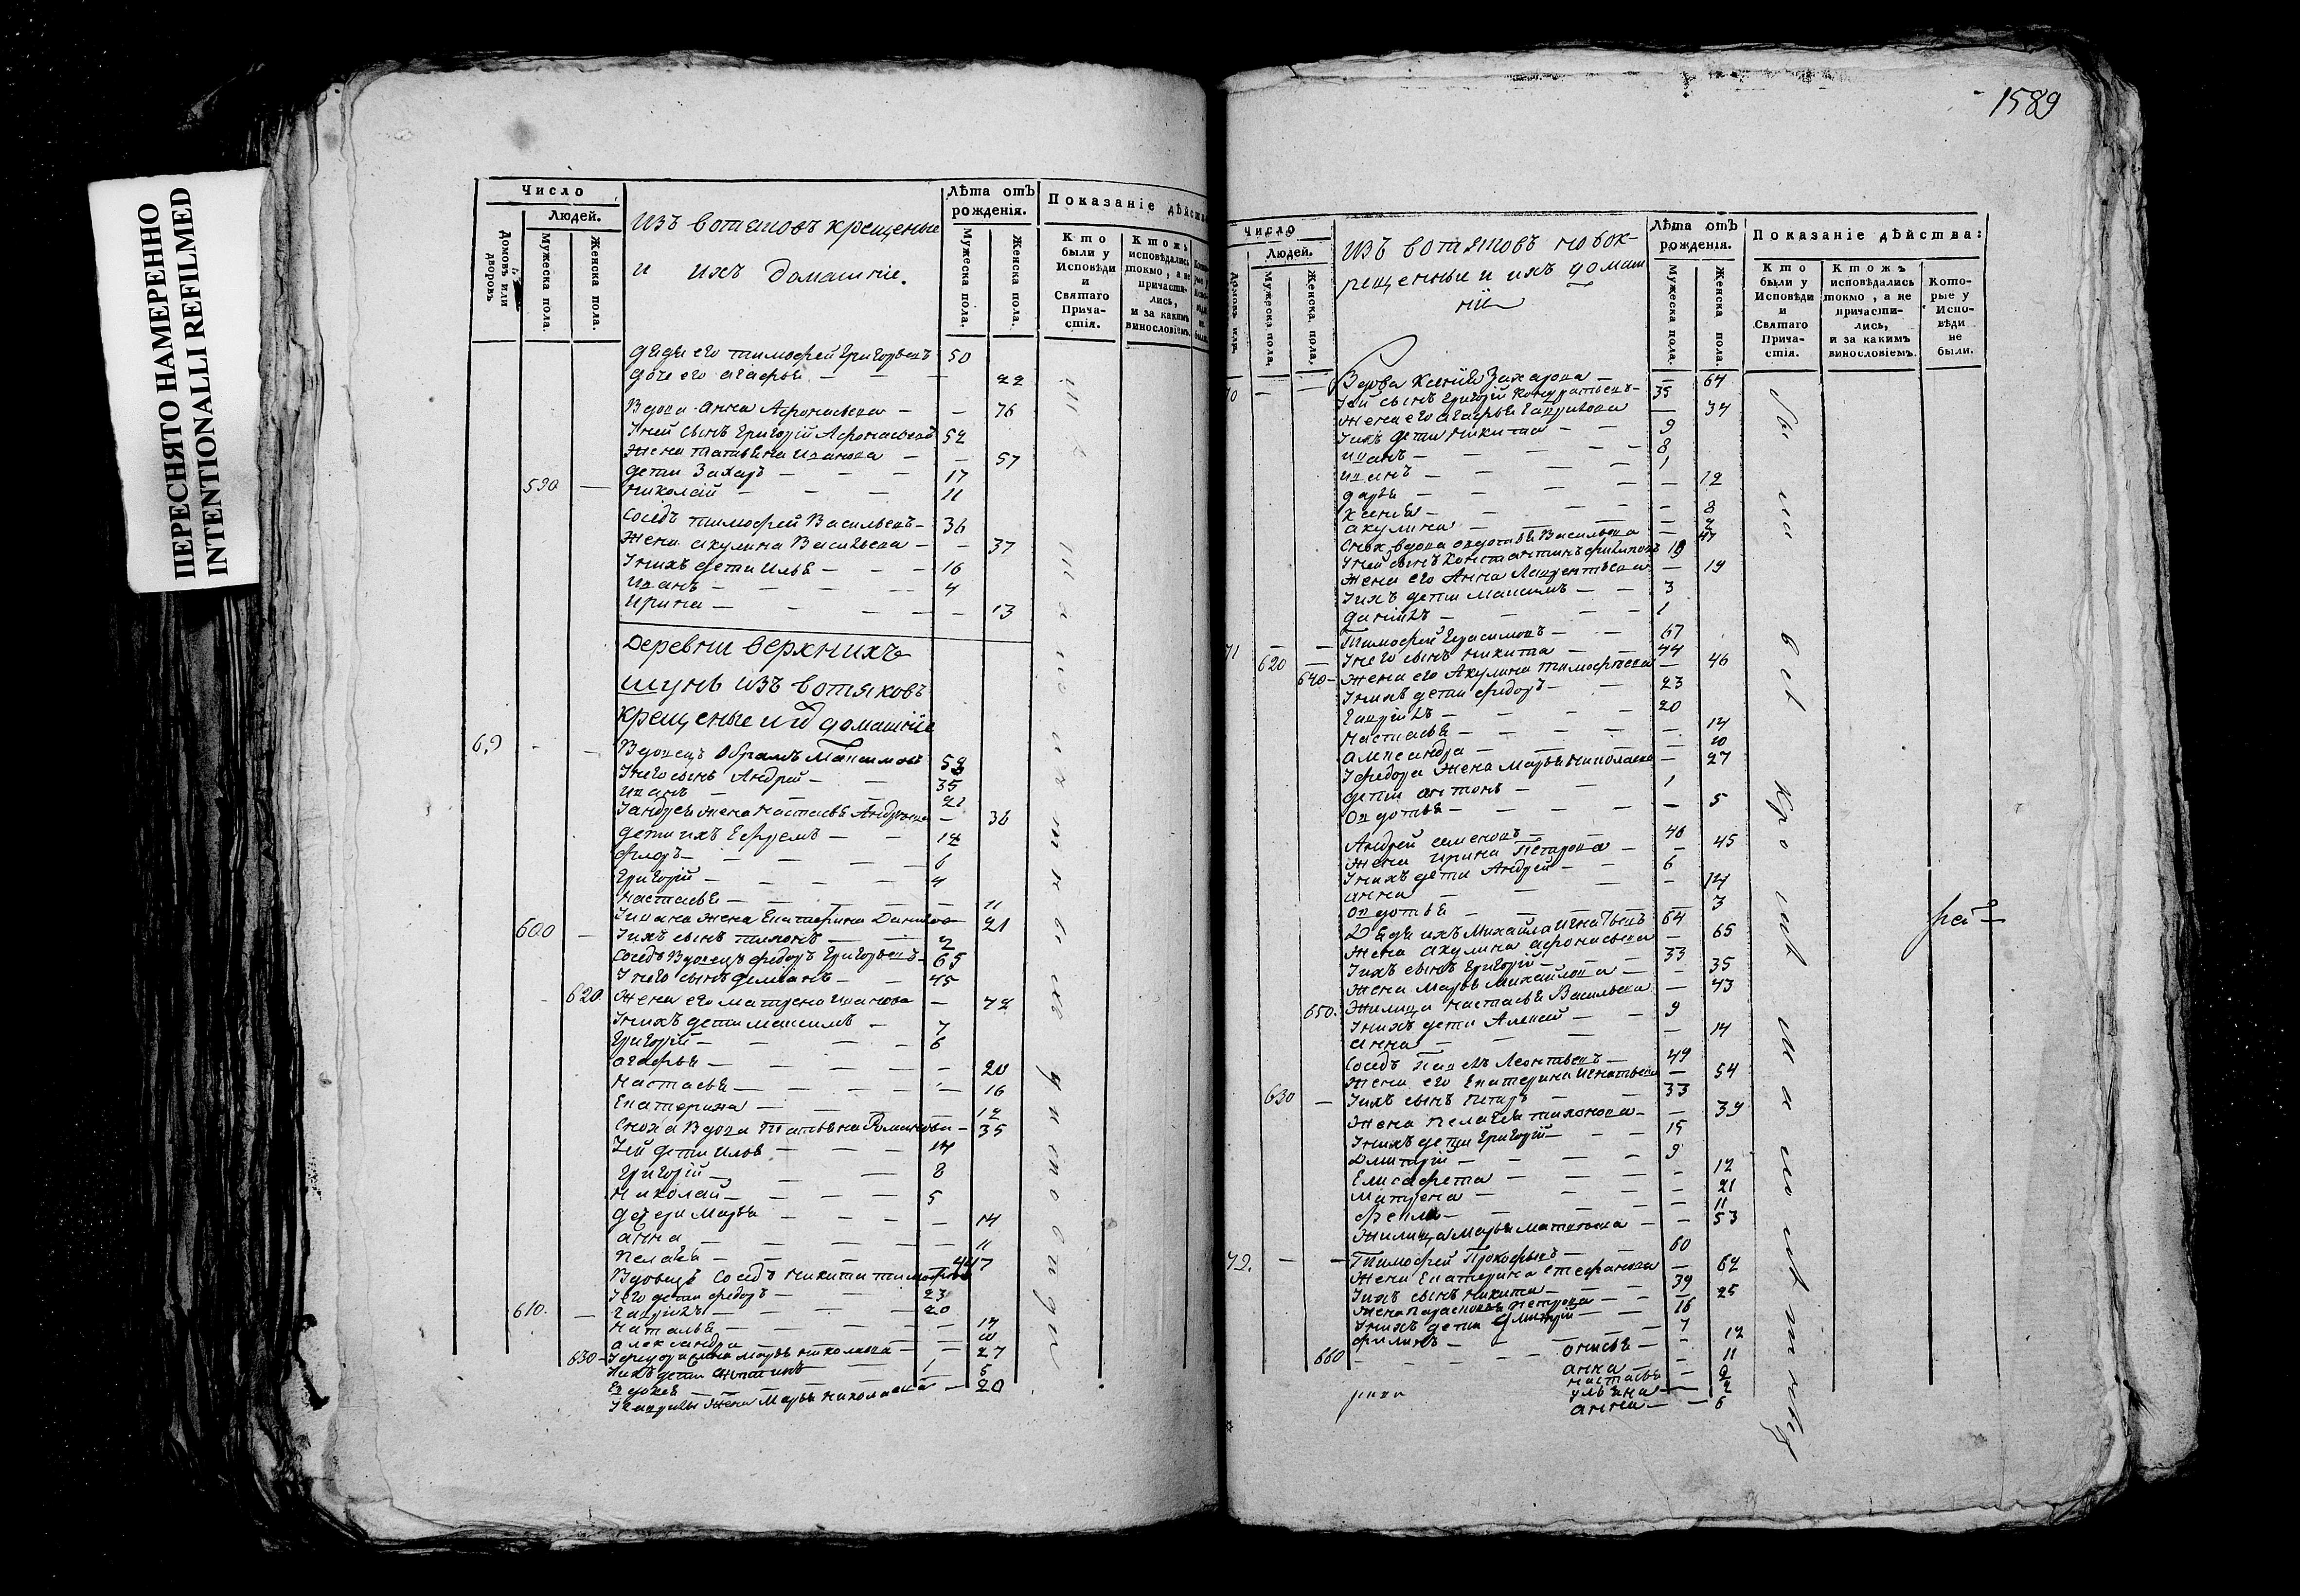 ПЕРЕСНЯТО НАМЕРЕННО
INTENTIONALLI REFILMED
Число
Людей.
Домовъ или дворовъ
Мужеска пола.
Женска пола.
Изъ вотяковъ крещеные
и ихъ домашніе.
Лѣта отъ рожденія.
Мужеска пола.
Женска пола.
Показаніе дѣйства
Кто были у Исповѣди и Святаго Причастія.
Ктожъ исповѣдались токмо, а не причастились, и за какимъ винословіемъ.
дядя его тимофей Григорьевъ 50
дочь его агафья — — — 22
Вдова Анна Афонасьева — — 76
У ней сынъ Григорій Афонасьевъ 52
жена татьяна Иванова — — 57
дети Захаръ — — — 17
590 — николай — — — 11
Соседъ тимофей Васильевъ — 36
Жена акулина Васильева — — 37
У нихъ дети илья — — — 16
иванъ — — — — 4
ирина — — — — — 13
Деревни верхнихъ
шунь изъ вотяковъ
крещеные и домашніе
69 — — Вдовецъ Обрамъ Максимовъ
У него сынъ Андрей — — 35
иванъ — — — 21
У андрея жена настасья Андреева — 36
дети ихъ Ефремъ — — 12
флоръ — — — — 6
Григорій — — — — 4
настасья — — — — — 11
У ивана жена Екатерина Данилова 21
600 — У ихъ сынъ тихонъ — — 2
Соседъ Вдовецъ федоръ Григорьевъ 65
У него сынъ демьянъ — — 45
620 Жена его матрена Иванова — 42
У нихъ дети максимъ — 7
Григорій — — — — 6
агафья — — — — — 20
настасья — — — — — 16
Екатерина — — — 12
Сноха Вдова татьяна — 35
У ей дети илья — — — 14
Григорій — — — 8
николай — — — — 5
дочери марья — — — — 14
анна — — — — — 11
пелагея — — —
Вдовецъ Соседъ никита тимофеевъ
У его дети федоръ — — 23
610. — гаврилъ — — — 20
наталья — — — — — 14
александра — — — 10
630 — У федора жена марья николаева — 27
У ихъ дети антонъ — — 1
5
У гаврилы жена Марья николаева — 20
1589
Число
Людей.
Домовъ или
Мужеска пола.
Женска пола.
Изъ вотяковъ новок-
рещенные и ихъ домаш
ніе
Лѣта отъ рожденія.
Мужеска пола.
Женска пола.
Показаніе дѣйства:
Кто были у Исповѣди и Святаго Причастія.
Ктожъ исповѣдались токмо, а не причастились, и за какимъ винословіемъ.
Которые у Исповѣди не были.
70 — — Вдова Ксенія Захарова — — 64
У ей сынъ Григорій Кондратьевъ — 35
жена его агафья Гаврилова — 34
У ихъ дети никита — — 9
иванъ — — — — 8
иванъ — — — — 1
дарья — — — — — 12
ксенія — — — — 8
акулина — — — — 2
Сноха вдова овдотья Васильева — 47
У ней сынъ Константинъ филиповъ 19
жена его Анна Лаврентьева — 19
У ихъ дети максимъ — — 3
данійлъ — — — — 1
71 — — Тимофей Герасимовъ — — 67
620 — У него сынъ никита — — 44
640 — жена его Акулина тимофеева — 46
У нихъ дети федоръ — — 23
Гаврійлъ — — — — 20
настасья — — — — — 14
александра — — — — 10
У федора жена Марья николаева — 27
дети антонъ — — — 1
Овдотья — — — — — 5
Андрей семеновъ — — 46
Жена ирина Петрова — — 45
У нихъ дети Андрей — — 6
анна — — — — — 14
овдотья — — — — — 3
Дядя ихъ Михайла игнатьевъ 64
Жена акулина афонасьева — 65
У ихъ сынъ Григорій — — — 33
Жена Марья михайлова — — 35
650. Жилица настасья Васильева — 43
У нихъ дети Алексей — — 9
анна — — — — — 14
Соседъ Павелъ Леонтьевъ — 49
Жена его Екатерина игнатьева — 54
630 — У ихъ сынъ Петръ — — 33
Жена пелагея тихонова — — 39
У нихъ дети Григорій — — 15
дмитрій — — — — 9
Елисафета — — — — 12
матрена — — — — 21
фекла — — — — — 11
Жилица марья матвеева — — 53
72. — — Тимофей Прокофьевъ — — 60
Жена Екатерина стефанова — 62
У ихъ сынъ никита — — — 39
Жена парасковья петрова — — 25
У нихъ дети дмитрій — — 16
филипъ — — — — 7
660 — — — — онисья — — 12
анна — — 11
настасья — 9
ульяна — 2
анна — — 6